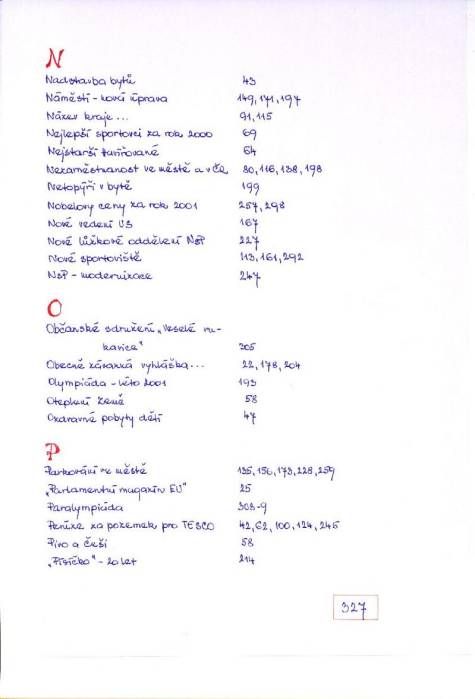 N
Nadstavba bytů 43
Náměstí - nová úprava 149, 171, 197
Název kraje ... 91, 115
Nejlepší sportovci za rok 2000 69
Nejstarší 64
Nezaměstnanost ve městě a v ČR 80, 116, 138, 198
Netopýři v bytě 199
Nobelovy ceny za rok 2001 257, 298
Nové vedení 167
Nové lůžkové oddělení NsP 227
Nové sportoviště 113, 161, 292
NsP - modernizace 247
O
Občanské sdružení „Veselé ru-
kavice" 305
Obecně závazná vyhláška ... 22, 178, 204
Olympiáda - léto 2001 193
Oteplení Země 58
Ozdravné pobyty dětí 47
P
Parkování ve městě 135, 156, 173, 228, 259
„Parlamentní magazín EU" 25
Paralympiáda 308-9
Peníze za pozemek pro TESCO 42, 62, 100, 124, 245
Pivo a Češi 58
„Písíčko" - 20 let 214
327